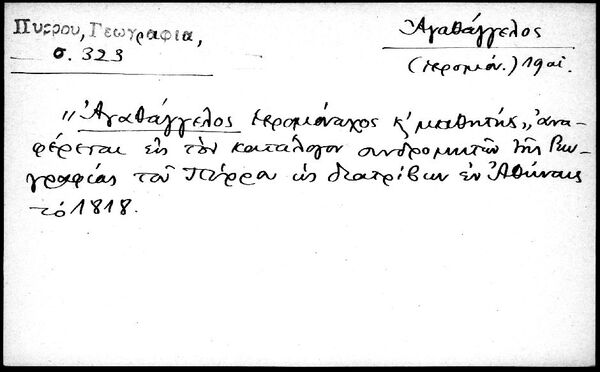 Πύρρου, Γεωγραφία,
σ. 323
Ἀγαθάγγελος
(ἱερομόν.) 19 αἰ.
"Ἀγαθάγγελος ἱερομόναχος κ' μαθητής", ἀνα-
φέρεται εἰς τὸν κατάλογον συνδρομητῶν τῆς Γεω-
γραφίας τοῦ Πύρρου ὡς διατρίβων ἐν Ἀθήναις
τό 1818.